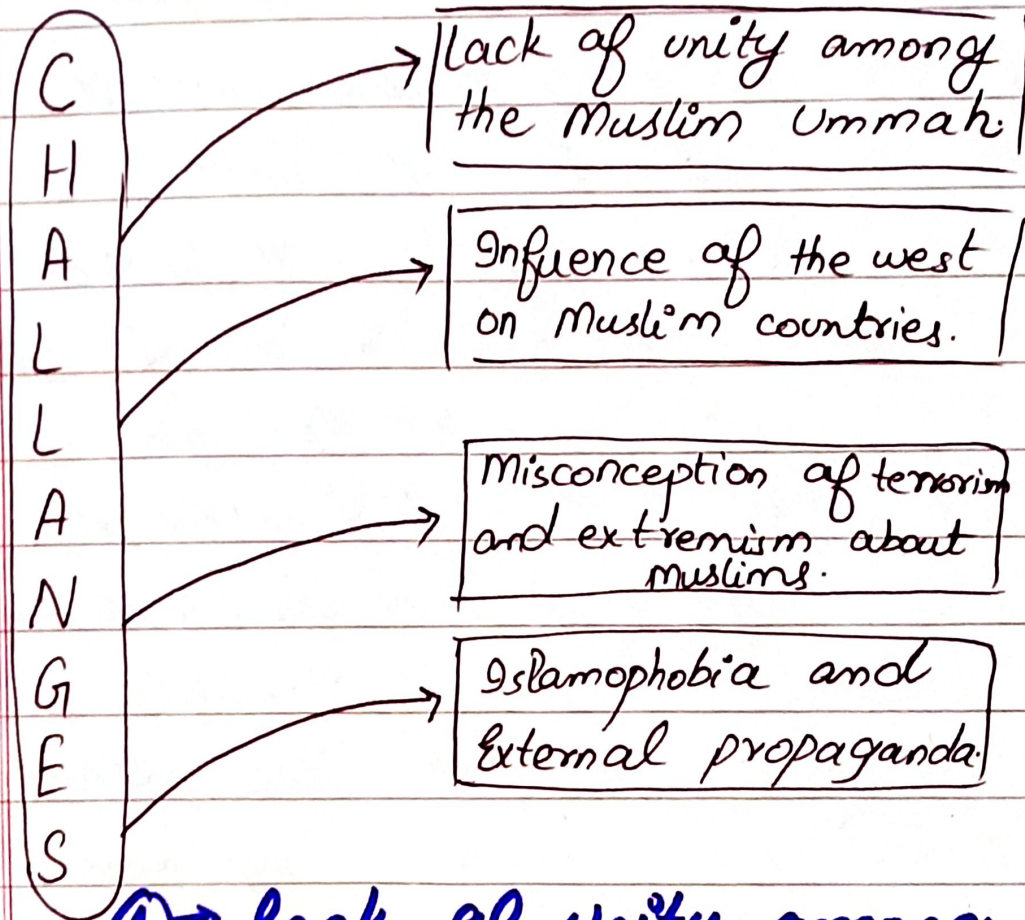 C
H
A
L
L
A
N
G
E
S
Lack of unity among
the Muslim Ummah.
Infuence of the west
on Muslim countries.
Misconception of terrorism
and extremism about
Muslims.
Islamophobia and
External propaganda.
① → Lack of unity among